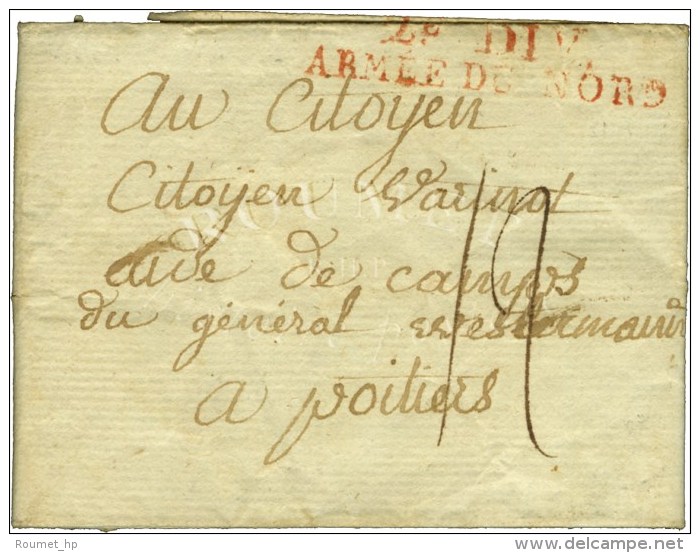 2E DIV.
ARMÉE DU NORD
Au Citoyen
Citoyen Varinot
aide de camps
du général westermann
a poitiers
19
ROUMET
Roumet_hp
delcampe.net